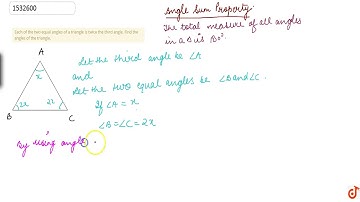 1532600
Each of the two equal angles of a triangle is twice the third angle. Find the angles of the triangle.
Angle Sum Property:
The total measure of all angles
in a Δ is 180°.
A
x
2x
2x
B
C
Let the third angle be ∠A
and
Let the two equal angles be ∠B and ∠C.
If ∠A = x
∠B = ∠C = 2x
By using angle